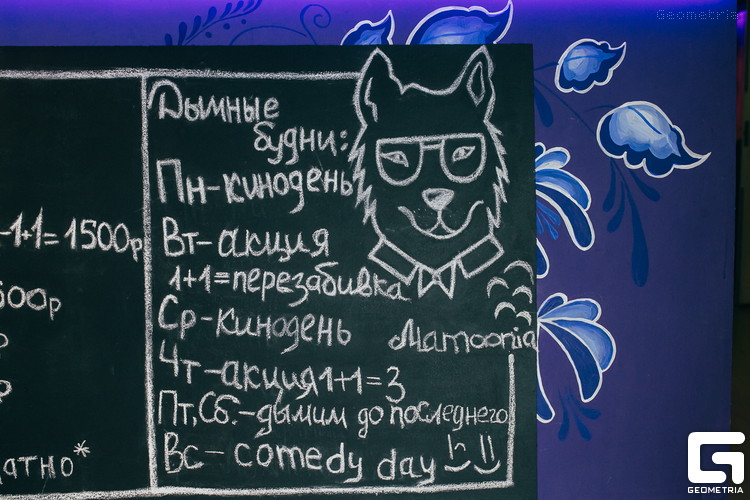 Geometria
Дымные
будни:
Пн-кинодень
Вт-акция
1+1=перезабивка
Ср-кинодень
Mamoonia
Чт-акция 1+1=3
Пт, Сб.-дымим до последнего
Вс-comedy day
-1+1=1500р
500р
р
р
атно*
GEOMETRIA